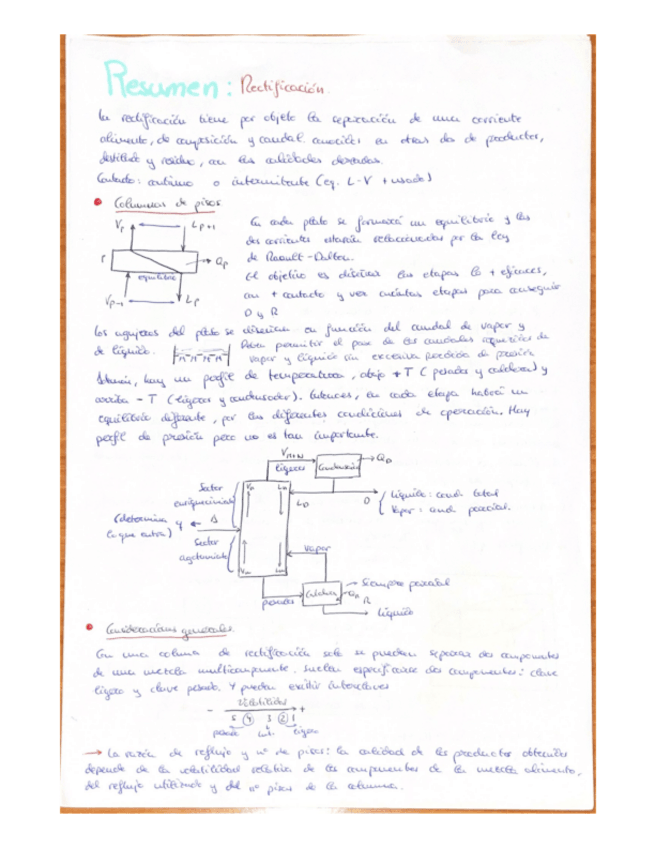 Resumen: Rectificación.
La rectificación tiene por objeto la separación de una corriente
alimento, de composición y caudal conocidos en otras dos de productos,
destilado y residuo, con las calidades deseadas.
Contacto: continuo o intermitente (eq. L-V + usado)
Columnas de pisos
Vp Lp+1
P Qp
equilibrio
Vp-1 Lp
En cada plato se formará un equilibrio y las
dos corrientes estarán relacionadas por la ley
de Raoult-Dalton.
El objetivo es diseñar las etapas lo + eficaces,
con + contacto y ver cuántas etapas para conseguir
D y R
Los agujeros del plato se diseñan en función del caudal de vapor y
de líquido. Debe permitir el paso de los caudales requeridos de
vapor y líquido sin excesiva pérdida de presión
Además, hay un perfil de temperaturas, abajo + T (pesados y caldera) y
arriba - T (ligeros y condensador). Entonces, en cada etapa habrá un
equilibrio diferente, por las diferentes condiciones de operación. Hay
perfil de presión pero no es tan importante.
ligeros
Condensador QD
Sector
enriquecimiento
Vn Ln
LD D
Líquido: cond. total
Vapor: cond. parcial.
(determina y
lo que entra)
Sector
agotamiento
Vm Lm
vapor
pesados
Caldera
Siempre parcial
QR R
Líquido
Consideraciones generales.
En una columna de rectificación solo se pueden separar dos componentes
de una mezcla multicomponente. Suelen especificarse dos componentes: clave
ligero y clave pesado. Y pueden existir interclaves
- Volatilidad +
5 4 3 2 1
pesado int. ligero
→ La razón de reflujo y nº de pisos: la calidad de los productos obtenidos
depende de la volatilidad relativa de los componentes de la mezcla alimento,
del reflujo utilizado y del nº pisos de la columna.